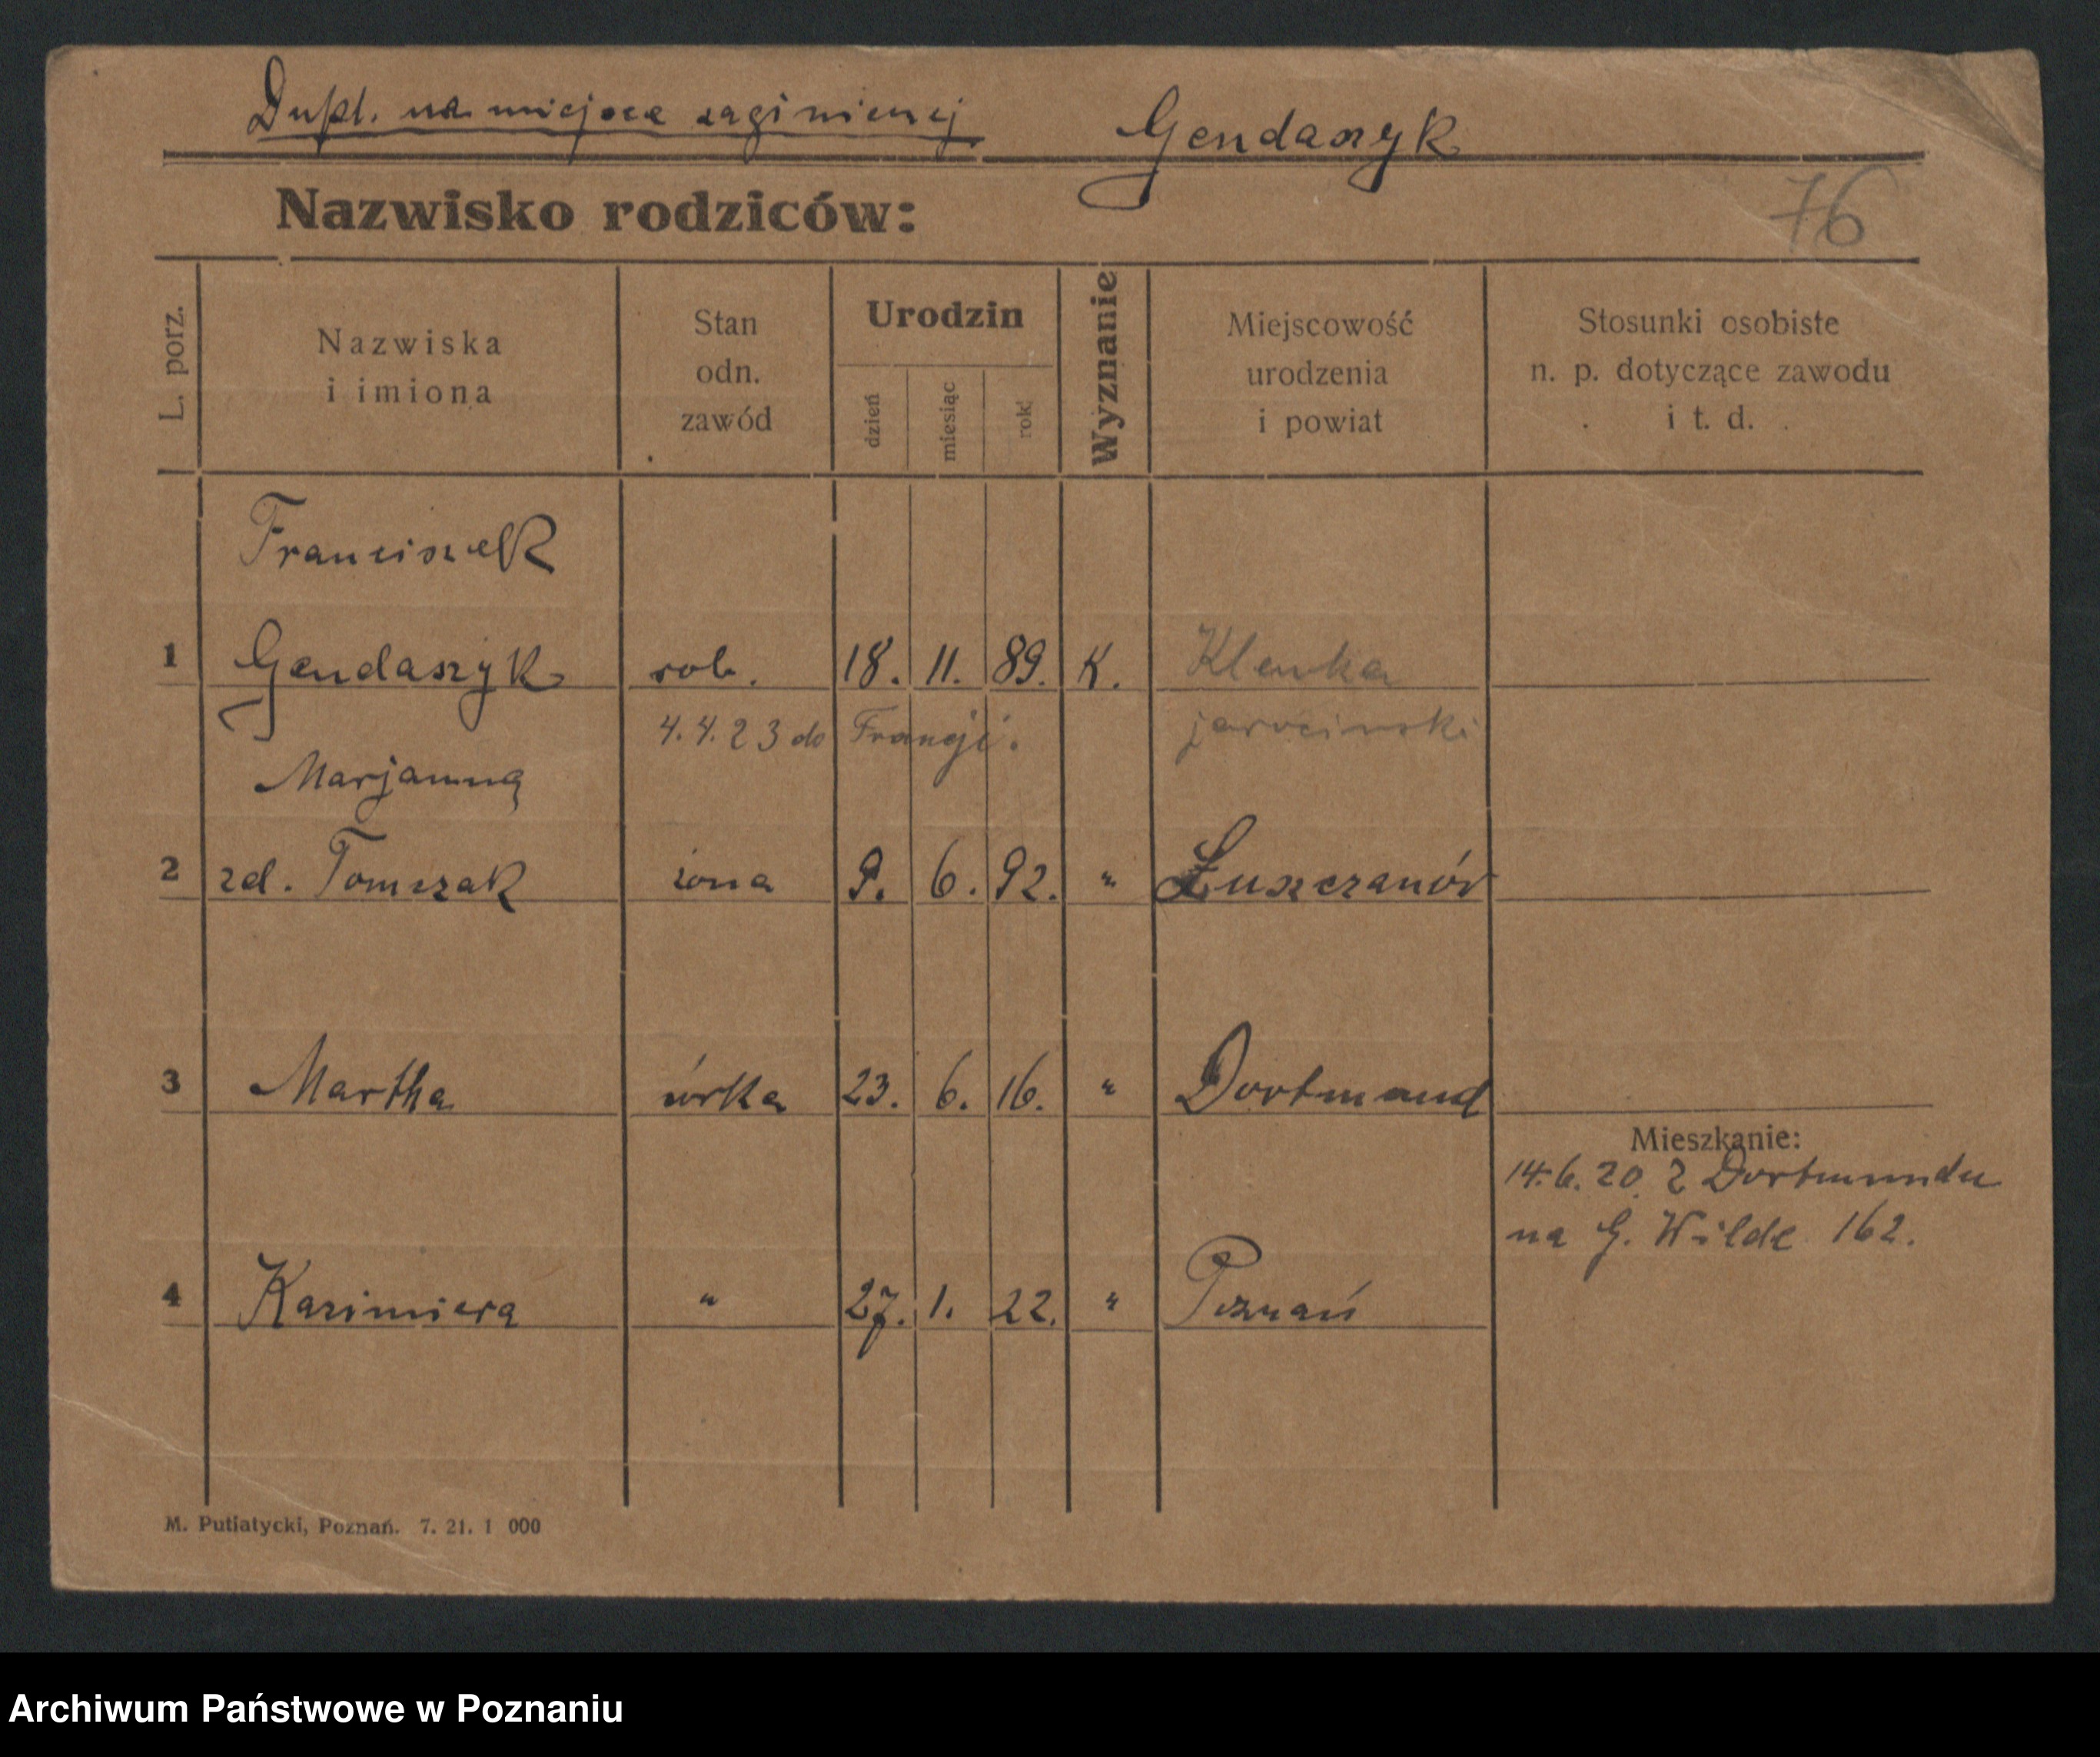 Dupl. na miejsce zaginienej
Gendaszyk
76
Nazwisko rodziców:
L. porz.
Nazwiska
i imiona
Stan
odn.
zawód
Urodzin
dzień
miesiąc
rok
Wyznanie
Miejscowość
urodzenia
i powiat
Stosunki osobiste
n. p. dotyczące zawodu
i t. d.
Franciszek
1 Gendaszyk rob. 18. 11. 89. K. Klenka
4.4.23 do Francji. jarocinski
Marjanna
2 zd. Tomczak żona 9. 6. 92. " Łuszczanów
3 Martha córka 23. 6. 16. " Dortmund
Mieszkanie:
14.6.20 z Dortmundu
na G. Wilde 162.
4 Kazimiera " 27. 1. 22. " Poznań
M. Putiatycki, Poznań. 7. 21. 1 000
Archiwum Państwowe w Poznaniu